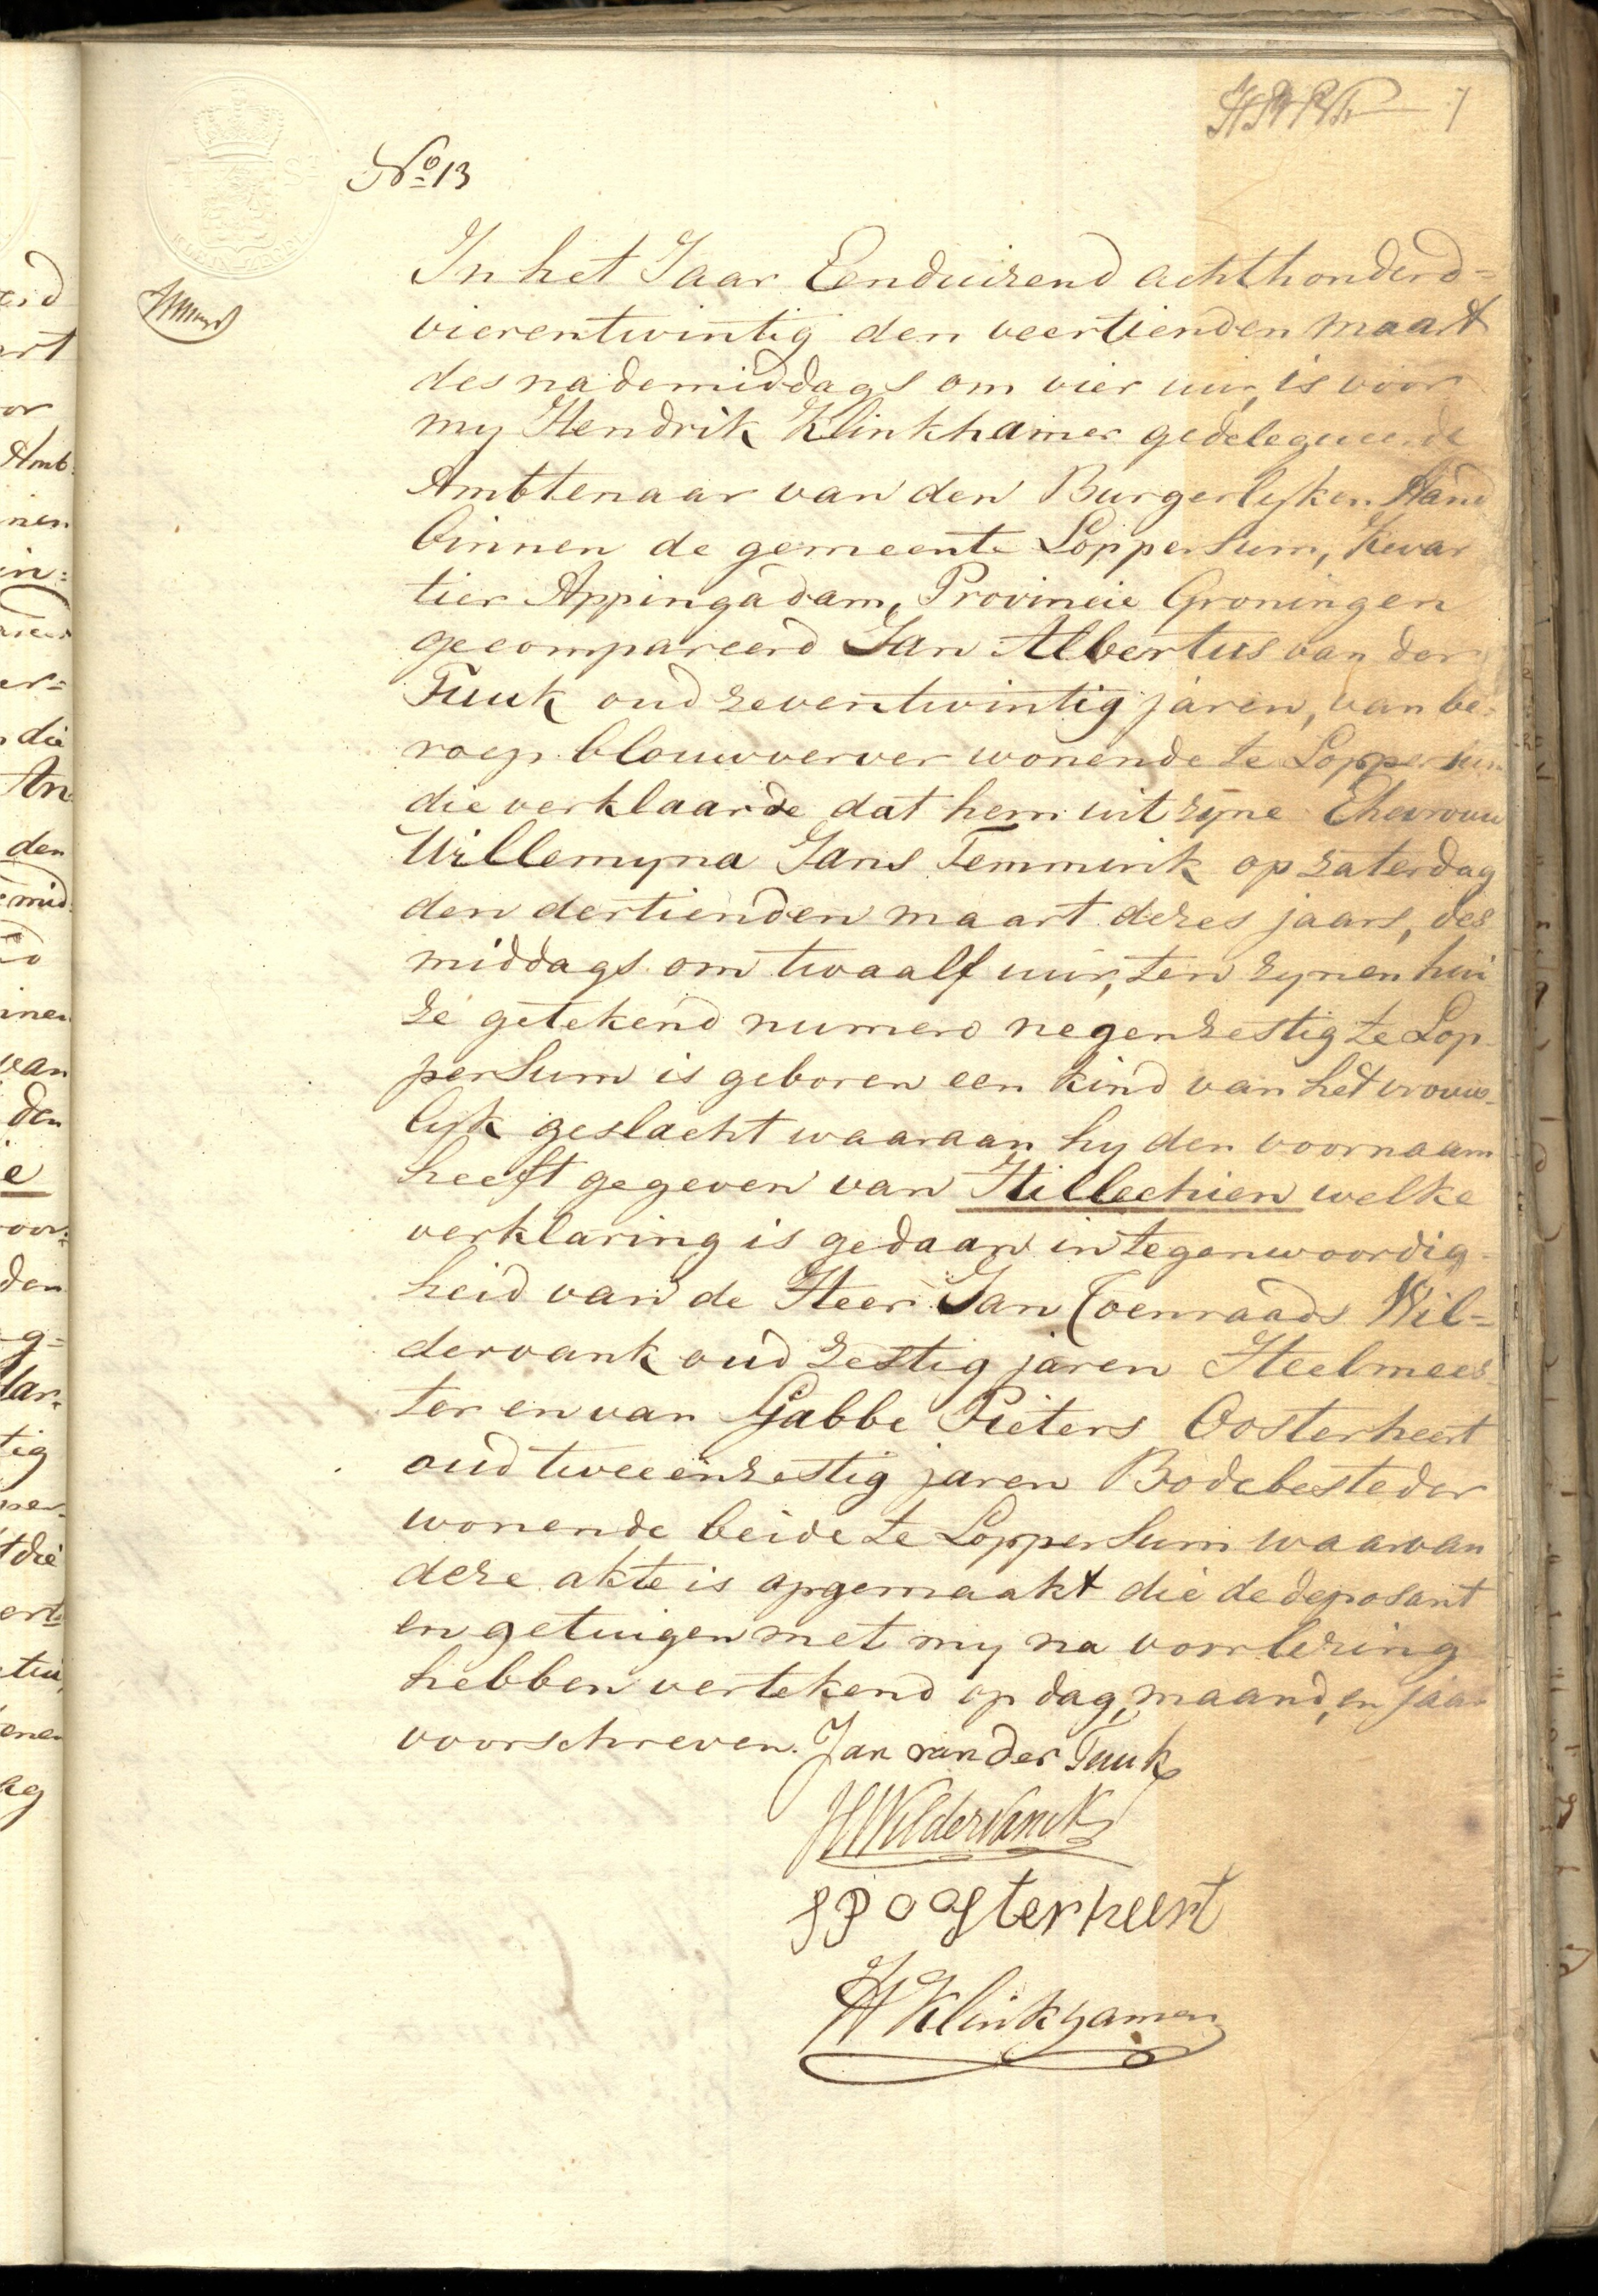 7
No 13
In het Jaar Eenduizend achthonderd=
vierentwintig den veertienden maart
des nademiddags om vier uur, is voor
my Hendrik Klinkhamer gedelegueerde
Ambtenaar van den Burgerlyken Stand
binnen de gemeente Loppersum, Kwar
tier Appingadam, Provincie Groningen
gecompareerd Jan Albertus van der
Tuuk oud zeventwintig jaren, van be=
roep blouwverver wonende te Loppersum
die verklaarde dat hem uit zyne Ehevrouw
Willemyna Jans Temmink op zaterdag
den dertienden maart dezes jaars, des
middags om twaalf uur, ten zynen hui
ze getekend numero negenzestig te Lop-
persum is geboren een kind van het vrouw-
lyk geslacht waaraan hy den voornaam
heeft gegeven van Hillechien welke
verklaring is gedaan in tegenwoordig-
heid van de Heer Jan Coenraads Wil=
dervank oud zestig jaren Heelmees
ter en van Gabbe Pieters Oosterheert
oud tweeenzestig jaren Bodebesteder
wonende beide te Loppersum waarvan
deze akte is opgemaakt die de deposant
en getuigen met my na voorlezing
hebben vertekend op dag, maand, en jaar
voorschreven. Jan van der Tuuk
Wildervanck
GP Oosterheert
H Klinkhamer